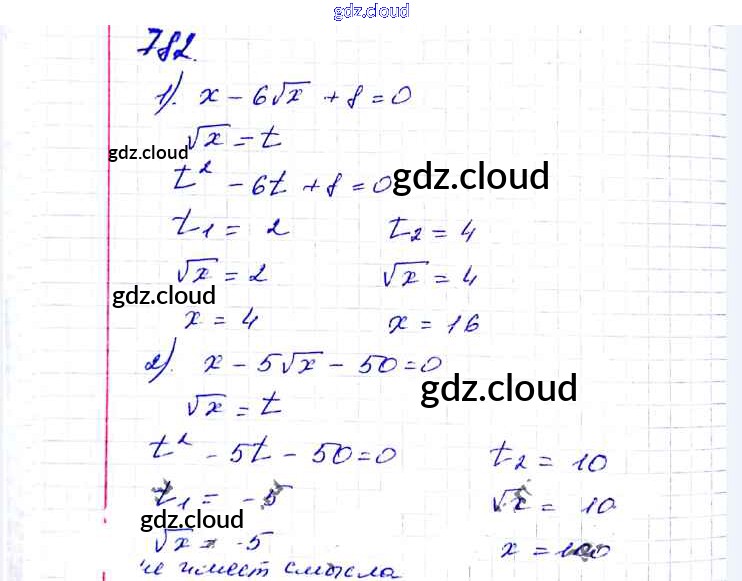 gdz.cloud
782.
1). x - 6√x + 8 = 0
√x = t
gdz.cloud
t² - 6t + 8 = 0 gdz.cloud
t₁ = 2 t₂ = 4
√x = 2 √x = 4
gdz.cloud
x = 4 x = 16
2). x - 5√x - 50 = 0
gdz.cloud
√x = t
t² - 5t - 50 = 0 t₂ = 10
t₁ = -5 √x = 10
gdz.cloud
√x = -5 x = 100
не имеет смысла